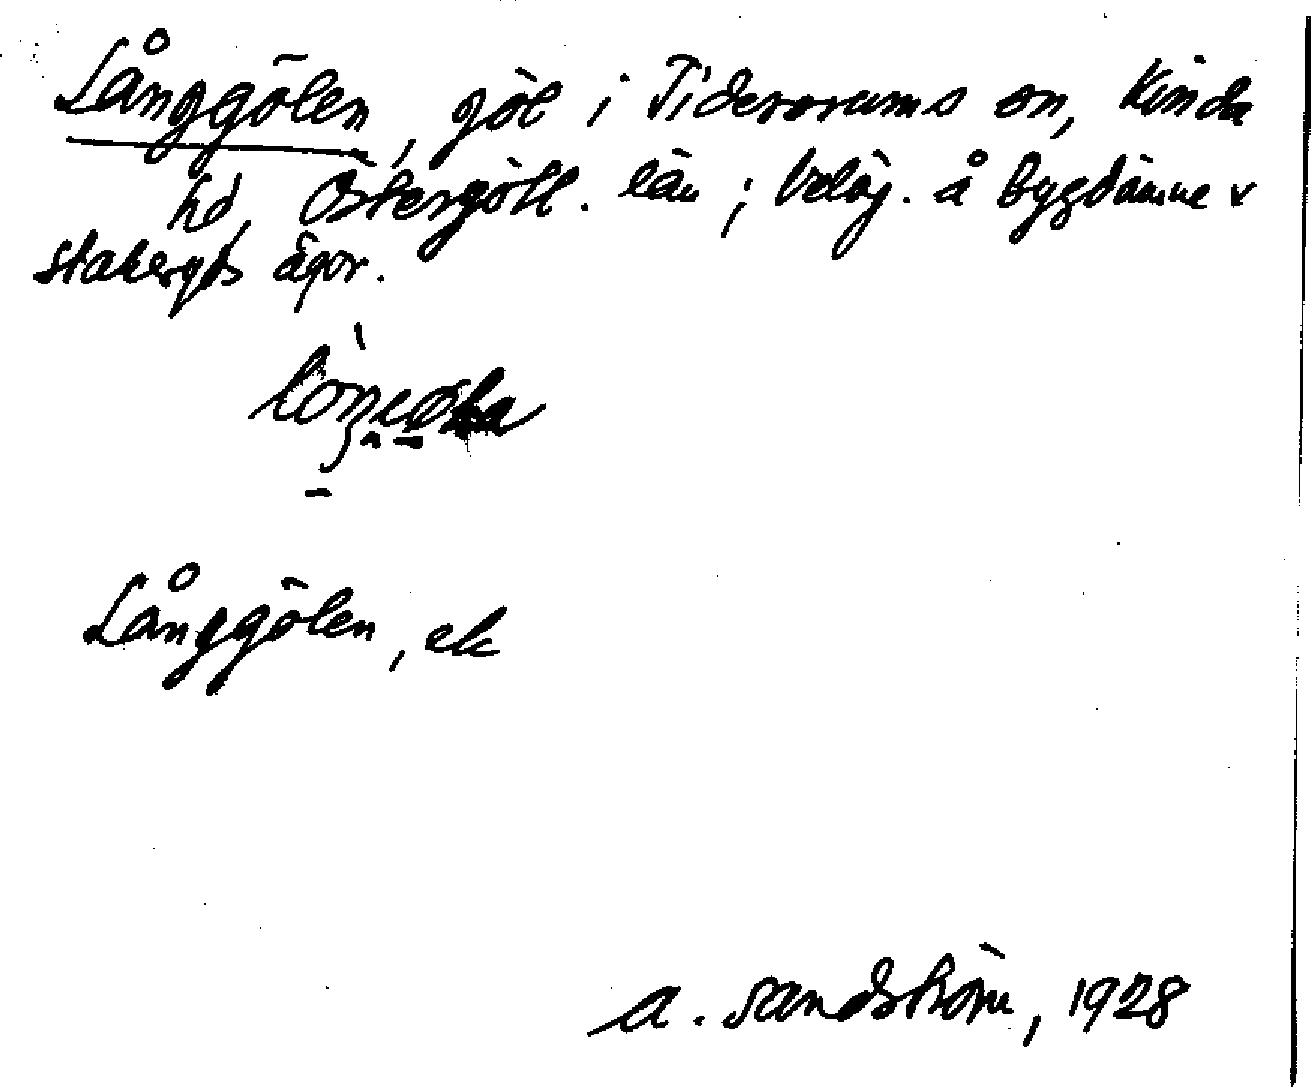 Långgölen, göl i Tidersrums sn, Kinda
hd, Östergötl. län; beläg. å Bygdämne v
Stabergs ägor.
Långgölen, ek
A. Sandström, 1928